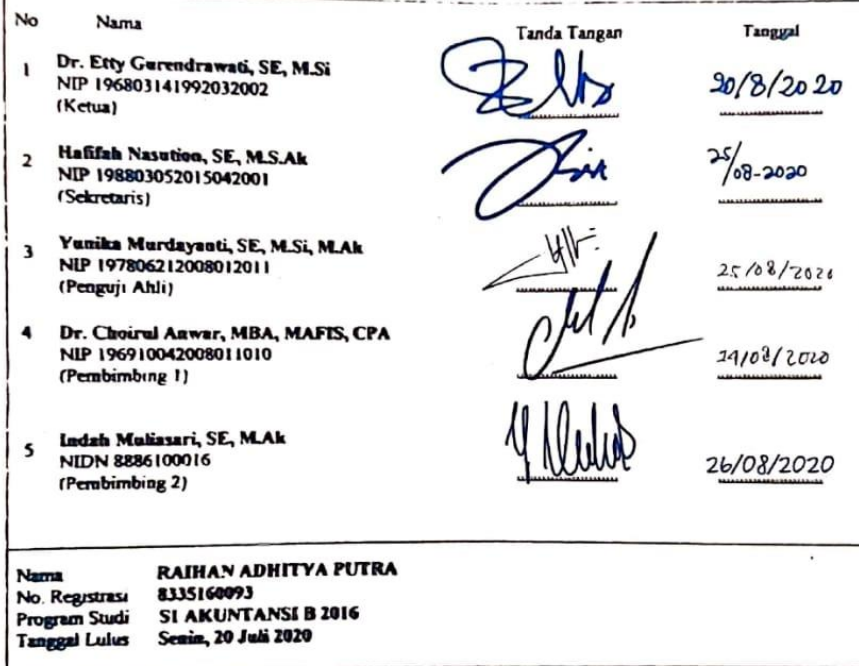 No Nama Tanda Tangan Tanggal
1 Dr. Etty Gurendrawati, SE, M.Si
NIP 196803141992032002 20/8/2020
(Ketua)
2 Hafifah Nasution, SE, M.S.Ak
NIP 198803052015042001 25/08-2020
(Sekretaris)
3 Yunika Murdayanti, SE, M.Si, M.Ak
NIP 197806212008012011 25/08/2020
(Penguji Ahli)
4 Dr. Choirul Anwar, MBA, MAFIS, CPA
NIP 196910042008011010 /08/2020
(Pembimbing 1)
5 Indah Muliasari, SE, M.Ak
NIDN 8886100016 26/08/2020
(Pembimbing 2)
Nama RAIHAN ADHITYA PUTRA
No. Registrasi 8335160093
Program Studi S1 AKUNTANSI B 2016
Tanggal Lulus Senin, 20 Juli 2020